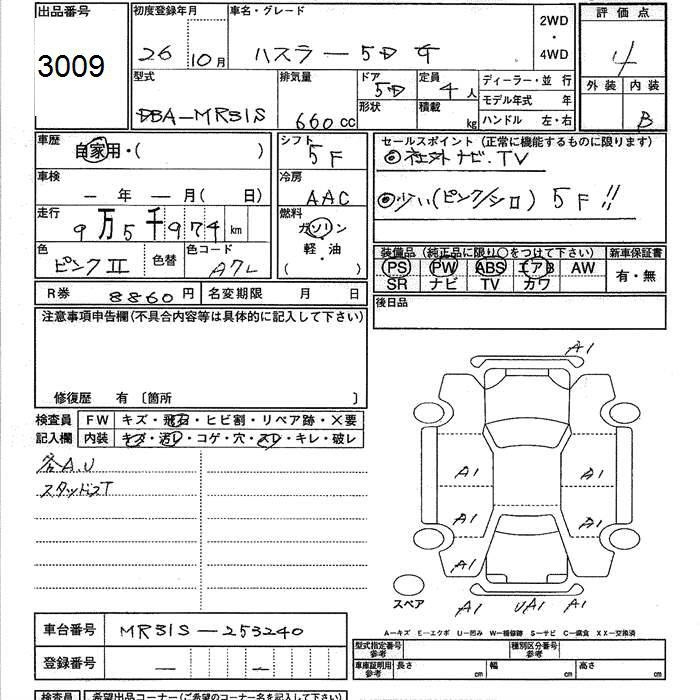 出品番号
3009
初度登録年月
26 10月
車名・グレード
ハスラー 5D G
2WD
・
4WD
評価点
4
外装 内装
B
型式
DBA-MR31S
排気量
660cc
ドア
5D
形状
定員
4人
積載
kg
ディーラー・並行
モデル年式 年
ハンドル 左・右
車歴
自家用・( )
車検
ー 年 ー 月( 日)
走行
9万5千974km
色
ピンクII
色替
色コード
シフト
5F
冷房
AAC
燃料
ガソリン
軽・油
( )
セールスポイント(正常に機能するものに限ります)
◎社外ナビ.TV
(ピンク/シロ) 5F!!
装備品(純正品に限り○をつけて下さい)
PS PW ABS エアB AW
SR ナビ TV カワ
新車保証書
有・無
R券 8860円
名変期限 月 日
後日品
注意事項申告欄(不具合内容等は具体的に記入して下さい)
修復歴 有 〔箇所 〕
検査員
記入欄
FW キズ・飛石・ヒビ割・リペア跡・×要
内装 キズ・汚レ・コゲ・穴・スレ・キレ・破レ
各A.U
スタッドレスT
A1
A1 A1
A1 A1
A1 A1
A1 UA1 A1
スペア
A―キズ E―エクボ U―凹み W―補修跡 S―サビ C―腐食 XX―交換済
車台番号
MR31S-253240
登録番号
ー ー
型式指定番号
参考
種別区分番号
参考
車庫証明用
参考
長さ cm 幅 cm 高さ cm
検査員
希望出品コーナー(ご希望のコーナー名を記入して下さい)